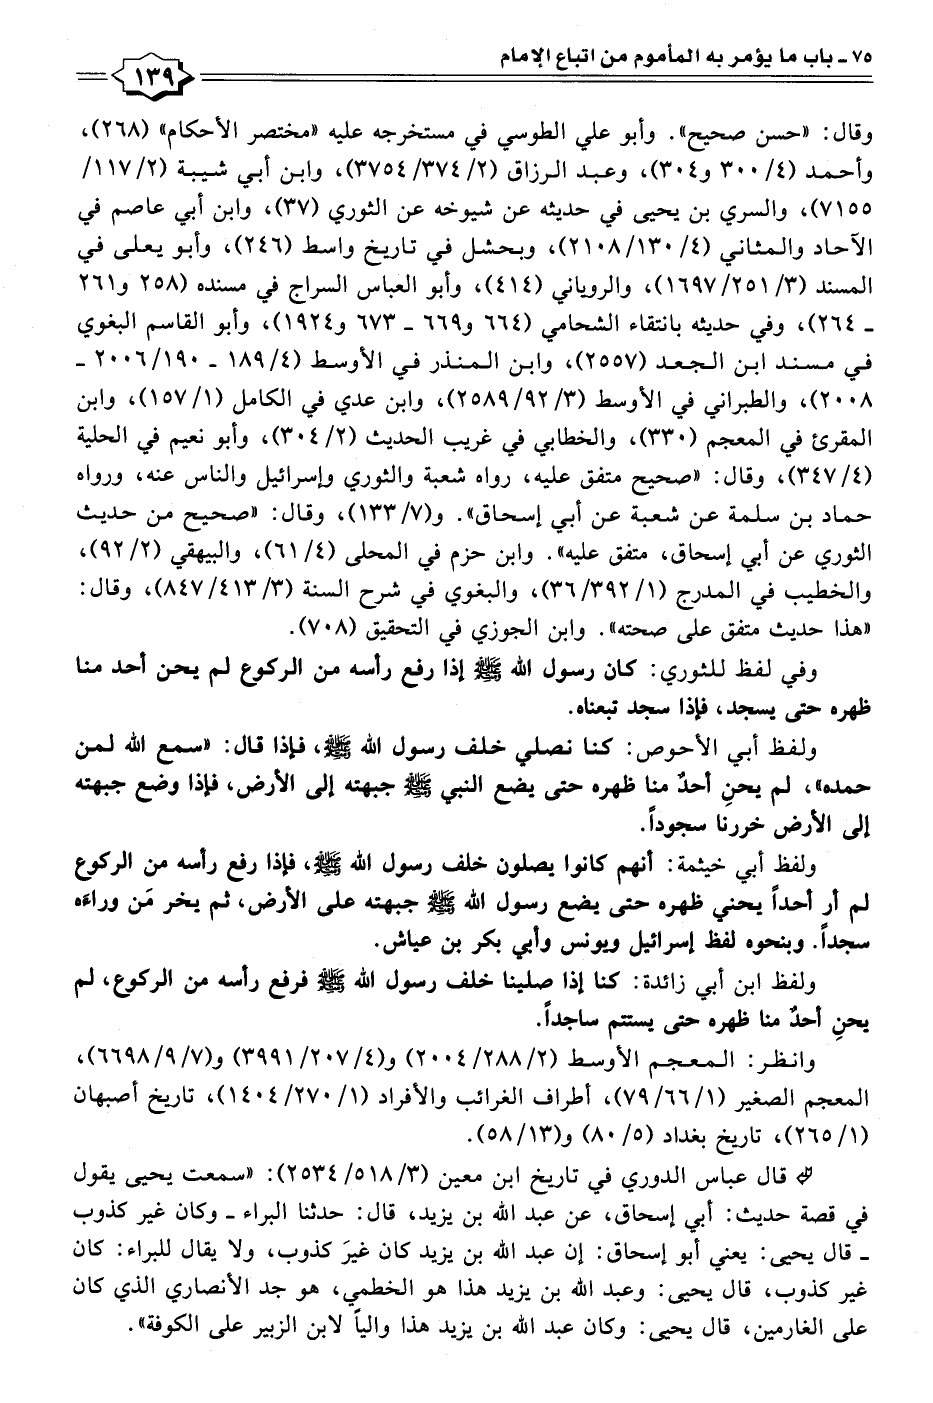 ٧٥ - باب ما يؤمر به المأموم من اتباع الإمام
١٣٩
وقال: «حسن صحيح». وأبو علي الطوسي في مستخرجه عليه «مختصر الأحكام» (٢٦٨)،
وأحمد (٤/ ٣٠٠ و٣٠٤)، وعبد الرزاق (٢/ ٣٧٤/ ٣٧٥٤)، وابن أبي شيبة (٢/ ١١٧/
٧١٥٥)، والسري بن يحيى في حديثه عن شيوخه عن الثوري (٣٧)، وابن أبي عاصم في
الآحاد والمثاني (٤/ ١٣٠/ ٢١٠٨)، وبحشل في تاريخ واسط (٢٤٦)، وأبو يعلى في
المسند (٣/ ٢٥١/ ١٦٩٧)، والروياني (٤١٤)، وأبو العباس السراج في مسنده (٢٥٨ و٢٦١
- ٢٦٤)، وفي حديثه بانتقاء الشحامي (٦٦٤ و٦٦٩ - ٦٧٣ و١٩٢٤)، وأبو القاسم البغوي
في مسند ابن الجعد (٢٥٥٧)، وابن المنذر في الأوسط (٤/ ١٨٩ - ١٩٠/ ٢٠٠٦ -
٢٠٠٨)، والطبراني في الأوسط (٣/ ٩٢/ ٢٥٨٩)، وابن عدي في الكامل (١/ ١٥٧)، وابن
المقرئ في المعجم (٣٣٠)، والخطابي في غريب الحديث (٢/ ٣٠٤)، وأبو نعيم في الحلية
(٤/ ٣٤٧)، وقال: «صحيح متفق عليه، رواه شعبة والثوري وإسرائيل والناس عنه، ورواه
حماد بن سلمة عن شعبة عن أبي إسحاق». و(٧/ ١٣٣)، وقال: «صحيح من حديث
الثوري عن أبي إسحاق، متفق عليه». وابن حزم في المحلى (٤/ ٦١)، والبيهقي (٢/ ٩٢)،
والخطيب في المدرج (١/ ٣٩٢/ ٣٦)، والبغوي في شرح السنة (٣/ ٤١٣/ ٨٤٧)، وقال:
«هذا حديث متفق على صحته». وابن الجوزي في التحقيق (٧٠٨).
وفي لفظ للثوري: كان رسول الله ﷺ إذا رفع رأسه من الركوع لم يحن أحد منا
ظهره حتى يسجد، فإذا سجد تبعناه.
ولفظ أبي الأحوص: كنا نصلي خلف رسول الله ﷺ، فإذا قال: «سمع الله لمن
حمده»، لم يحنِ أحدٌ منا ظهره حتى يضع النبي ﷺ جبهته إلى الأرض، فإذا وضع جبهته
إلى الأرض خررنا سجوداً.
ولفظ أبي خيثمة: أنهم كانوا يصلون خلف رسول الله ﷺ، فإذا رفع رأسه من الركوع
لم أر أحداً يحني ظهره حتى يضع رسول الله ﷺ جبهته على الأرض، ثم يخر مَن وراءَه
سجداً. وبنحوه لفظ إسرائيل ويونس وأبي بكر بن عياش.
ولفظ ابن أبي زائدة: كنا إذا صلينا خلف رسول الله ﷺ فرفع رأسه من الركوع، لم
يحنِ أحدٌ منا ظهره حتى يستتم ساجداً.
وانظر: المعجم الأوسط (٢/ ٢٨٨/ ٢٠٠٤) و(٤/ ٢٠٧/ ٣٩٩١) و(٧/ ٩/ ٦٦٩٨)،
المعجم الصغير (١/ ٦٦/ ٧٩)، أطراف الغرائب والأفراد (١/ ٢٧٠/ ١٤٠٤)، تاريخ أصبهان
(١/ ٢٦٥)، تاريخ بغداد (٥/ ٨٠) و(١٣/ ٥٨).
قال عباس الدوري في تاريخ ابن معين (٣/ ٥١٨/ ٢٥٣٤): «سمعت يحيى يقول
في قصة حديث: أبي إسحاق، عن عبد الله بن يزيد، قال: حدثنا البراء - وكان غير كذوب
- قال يحيى: يعني أبو إسحاق: إن عبد الله بن يزيد كان غيرَ كذوب، ولا يقال للبراء: كان
غير كذوب، قال يحيى: وعبد الله بن يزيد هذا هو الخطمي، هو جد الأنصاري الذي كان
على الغارمين، قال يحيى: وكان عبد الله بن يزيد هذا والياً لابن الزبير على الكوفة».